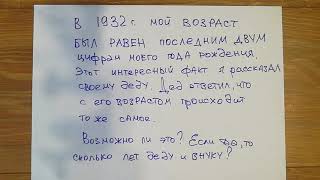 В 1932 г. мой возраст
был равен последним двум
цифрам моего года рождения.
Этот интересный факт я рассказал
своему деду. Дед ответил, что
с его возрастом происходит
то же самое.
Возможно ли это? Если да, то
сколько лет деду и внуку?